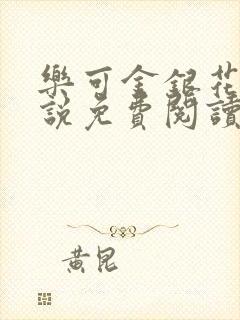 樂可金銀花
說免費閱讀
黃昆